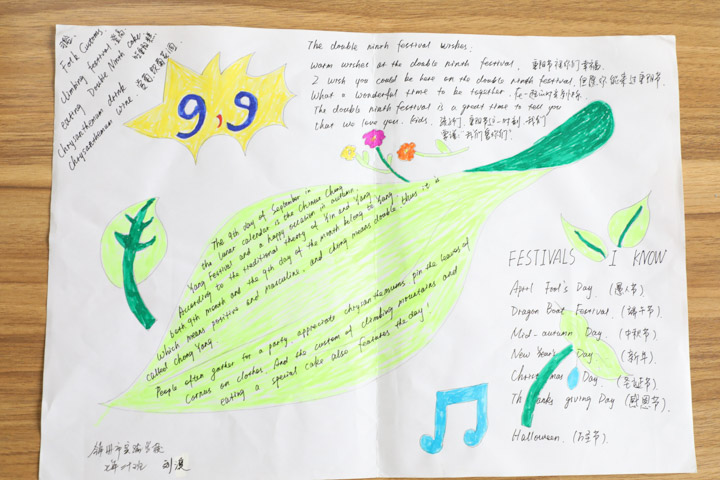 Folk Customs
Climbing festival
eating Double Ninth cake
Chrysanthemum drink
Chrysanthemum wine
9,9
The double ninth festival wishes:
Warm wishes at the double ninth festival. 重阳节祝你们幸福.
I wish you could be here on the double ninth festival. 但愿你能来过重阳节.
What a wonderful time to be together. 在一起的时光
The double ninth festival is a great time to tell you
that we love you. kids.
爱你们!
The 9th day of September in
the lunar calender is the Chinese Chong
Yang Festival and a happy occasion in autumn.
According to the traditional theory of Yin and Yang
both 9th month and the 9th day of the month belong to Yang
Which means positive and masculine. and chong means double. thus it is
called Chong Yang.
People often gather for a party, appreciate chrysanthemums. pin the leaves of
Cornus on clothes. And the custom of climbing mountains and
eating a special cake also features the day!
FESTIVALS I KNOW
April Fool's Day. (愚人节)
Dragon Boat Festival. (端午节)
Mid-autumn Day. (中秋节)
New Year's Day. (新年)
Christmas Day. (圣诞节)
Thanks giving Day (感恩节)
Halloween. (万圣节)